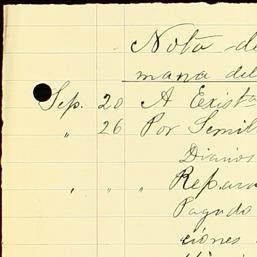 Nota de
mana del
Sep. 20 A Exista
" 26 Por Semil
Diarios
" " " Repara
Pagado
ciones